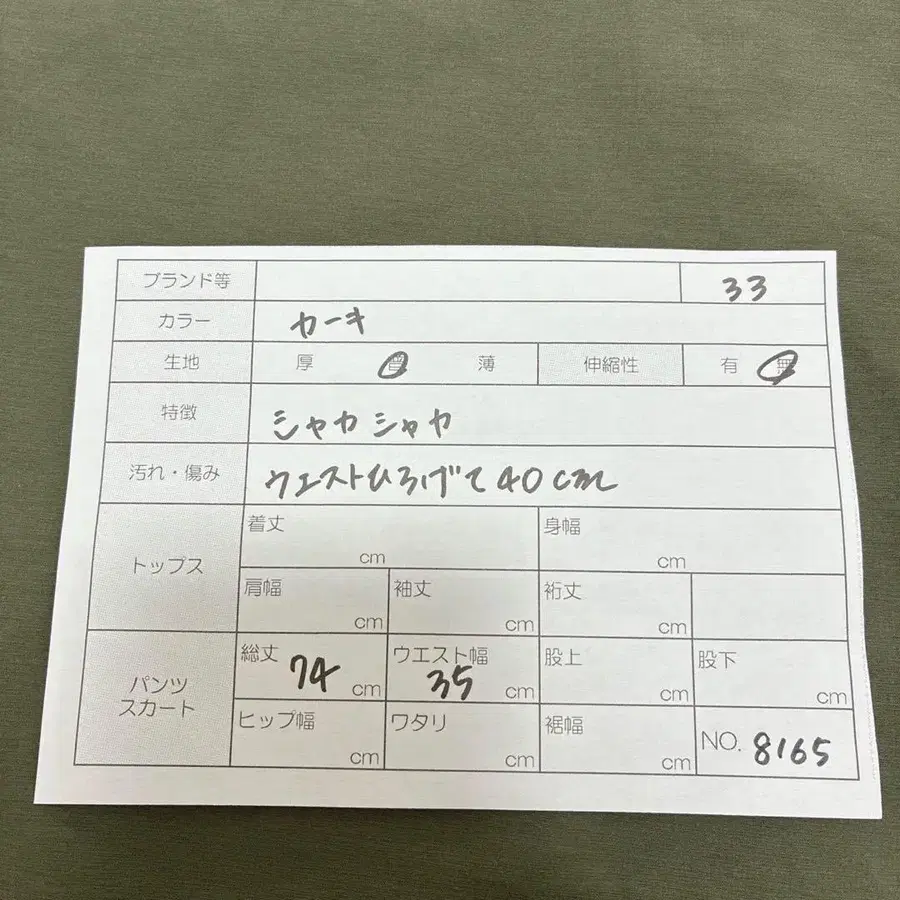 ブランド等 33
カラー カーキ
生地 厚 普 薄 伸縮性 有 無
特徴 シャカシャカ
汚れ・傷み ウエストひろげて40cm
トップス 着丈 cm 身幅 cm
肩幅 cm 袖丈 cm 裄丈 cm
パンツ スカート 総丈 74 cm ウエスト幅 35 cm 股上 cm 股下 cm
ヒップ幅 cm ワタリ cm 裾幅 cm NO. 8165